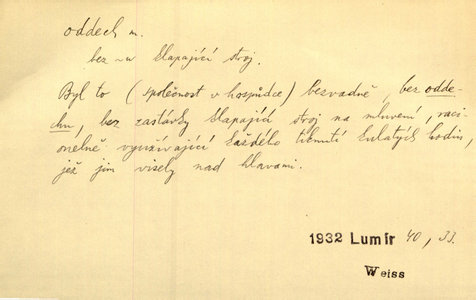 oddech m.
bez ~u klapající stroj.
Byl to (společnost v hospůdce) bezvadně, bez odde-
chu, bez zastávky klapající stroj na mluvení, raci-
onelně využívající každého tiknutí kulatých hodin,
jež jim visely nad hlavami.
1932 Lumír 40, 33.
Weiss